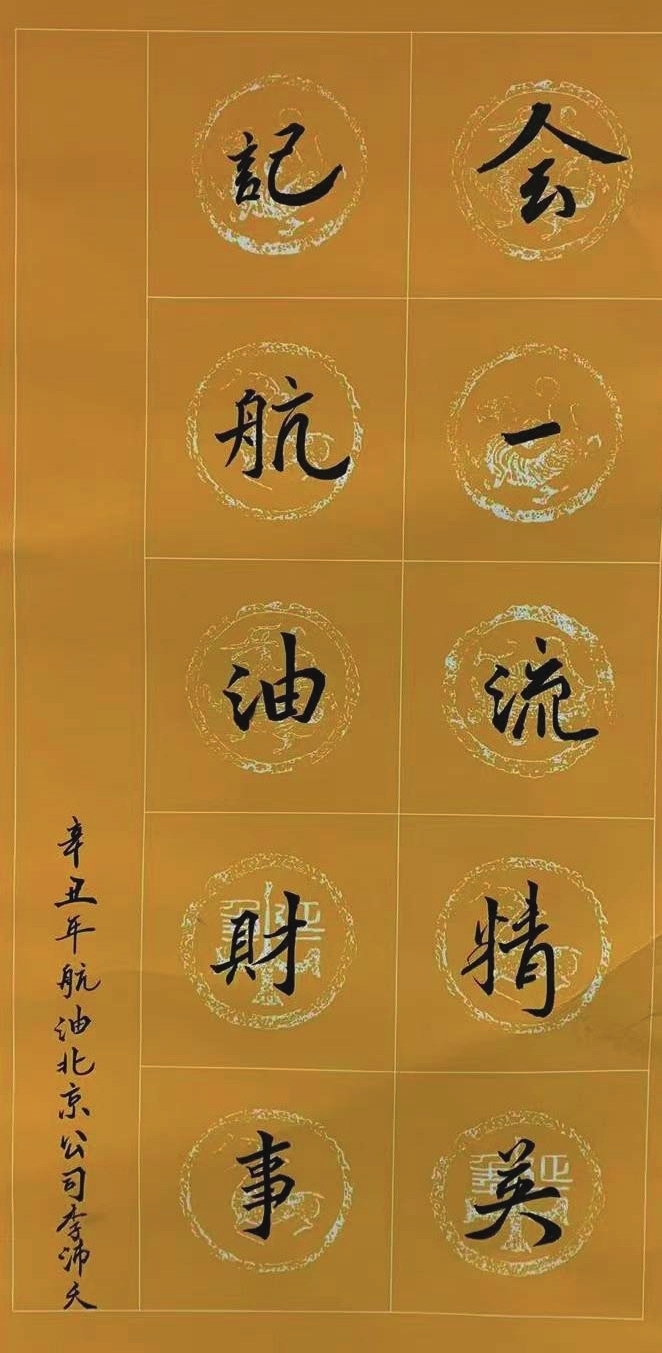 会一流精英
記航油財事
辛丑年航油北京公司李沛天